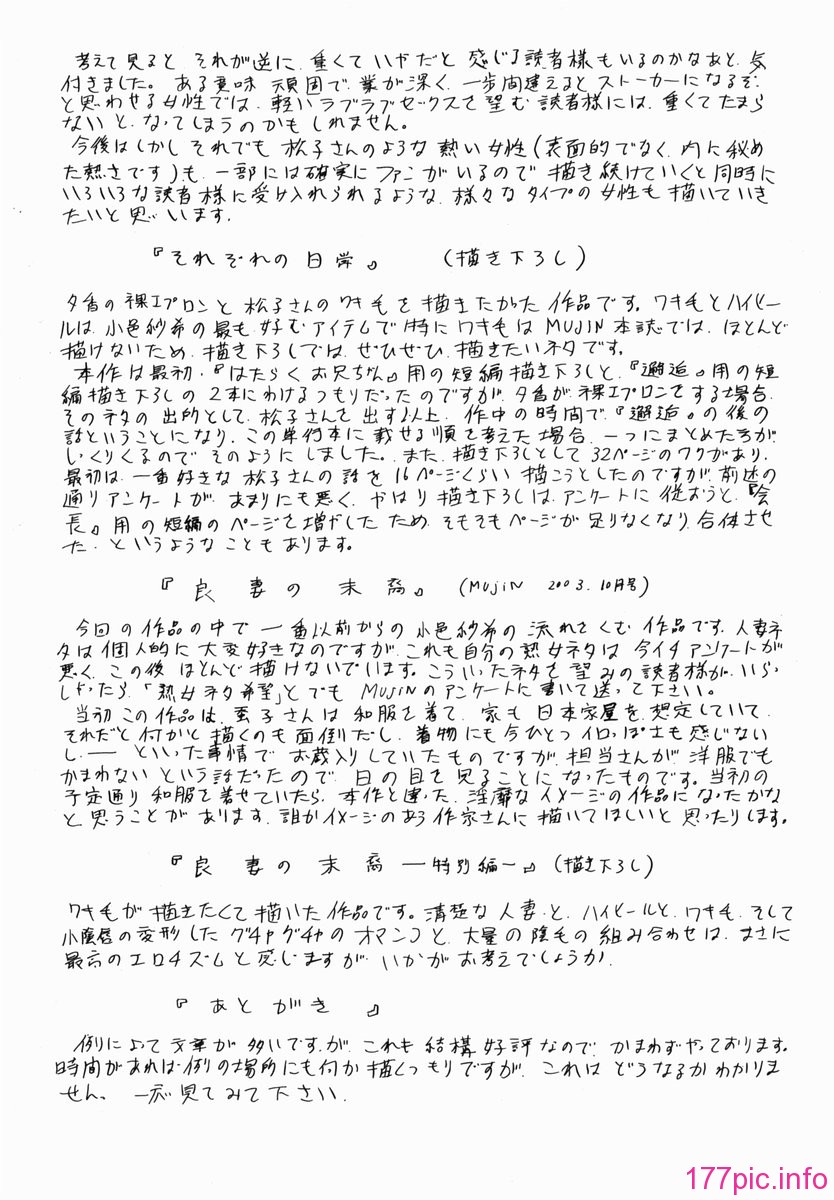 考えて見ると それが逆に、重くていやだと 感じる読者様もいるのかなあと、気
付きました。ある意味 頑固で、業が深く、一歩間違えるとストーカーになるぞ
と思わせる女性では、軽いラブラブセックスを望む読者様には、重くてたまら
ないと、なってしまうのかもしれません。
今後はしかし それでも 松子さんのような 熱い女性(表面的でなく、内に秘め
た熱さです)も、一部には確実に ファンがいるので 描き続けていくと同時に
いろいろな読者様に受け入れられるような、様々なタイプの女性も 描いていき
たいと思います。
『それぞれの日常』 (描き下ろし)
夕香の裸エプロンと 松子さんのワキ毛を描きたかった作品です。ワキ毛とハイヒー
ルは、小邑紗希の最も好むアイテムで 特にワキ毛は MUJIN本誌では、ほとんど
描けないため、描き下ろしでは、ぜひぜひ、描きたいネタです。
本作は最初、『はたらくお兄ちゃん』用の短編描き下ろしと、『邂逅』用の短
編描き下ろしの 2本にわけるつもりだったのですが、夕香が、裸エプロンをする場合、
そのネタの出所として、松子さんを出す以上、作中の時間で、『邂逅』の後の
話ということになり、この単行本に載せる順を考えた場合、一つにまとめた方が、
しっくりくるので そのようにしました。また、描き下ろしとして 32ページのワクがあり、
最初は、一番好きな松子さんの話を 16ページくらい 描こうとしたのですが、前述の
通りアンケートが、あまりにも悪く、やはり描き下ろしは、アンケートに従おうと、『会
長』用の短編のページを増やしたため、そもそもページが足りなくなり、合体させ
た、というようなこともあります。
『良妻の末裔』 (MUJIN 2003.10月号)
今回の作品の中で 一番以前からの小邑紗希の流れをくむ作品です。人妻ネ
タは個人的に大変好きなのですが、これも自分の熟女ネタは 今イチアンケートが
悪く、この後 ほとんど描けないでいます。こういったネタを望みの読者様が、いらっ
しゃったら、「熟女ネタ希望」とでも MUJINのアンケートに書いて送って下さい。
当初この作品は、 子さんは 和服を着て、家も日本家屋を、想定していて、
それだと何かと描くのも面倒だし、着物にも今ひとつイロっぽさも感じない
し、―― といった事情で お蔵入りしていたものですが、担当さんが、洋服でも
かまわないという話だったので、日の目を見ることになったものです。当初の
予定通り 和服を着せていたら、本作と違った、淫靡なイメージの作品になったかな
と思うことがあります。誰かイメージのあう作家さんに描いてほしいと思ったりします。
『良妻の末裔―特別編―』(描き下ろし)
ワキ毛が描きたくて描いた作品です。清楚な人妻と、ハイヒールと、ワキ毛、そして
小陰唇の変形したグチャグチャのオマンコと、大量の陰毛の組み合わせは、まさに
最高のエロチズムと感じますが、いかがお考えでしょうか。
『あとがき』
例によって文章が多いですが、これも結構好評なので、かまわずやっております。
時間があれば例の場所にも何か描くつもりですが、これはどうなるかわかりま
せん。一応見てみて下さい。
177pic.info